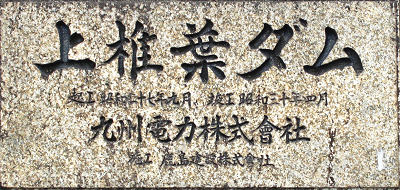 上椎葉ダム
起工 昭和二十七年九月 竣工 昭和三十年四月
九州電力株式會社
施工 鹿島建設株式会社